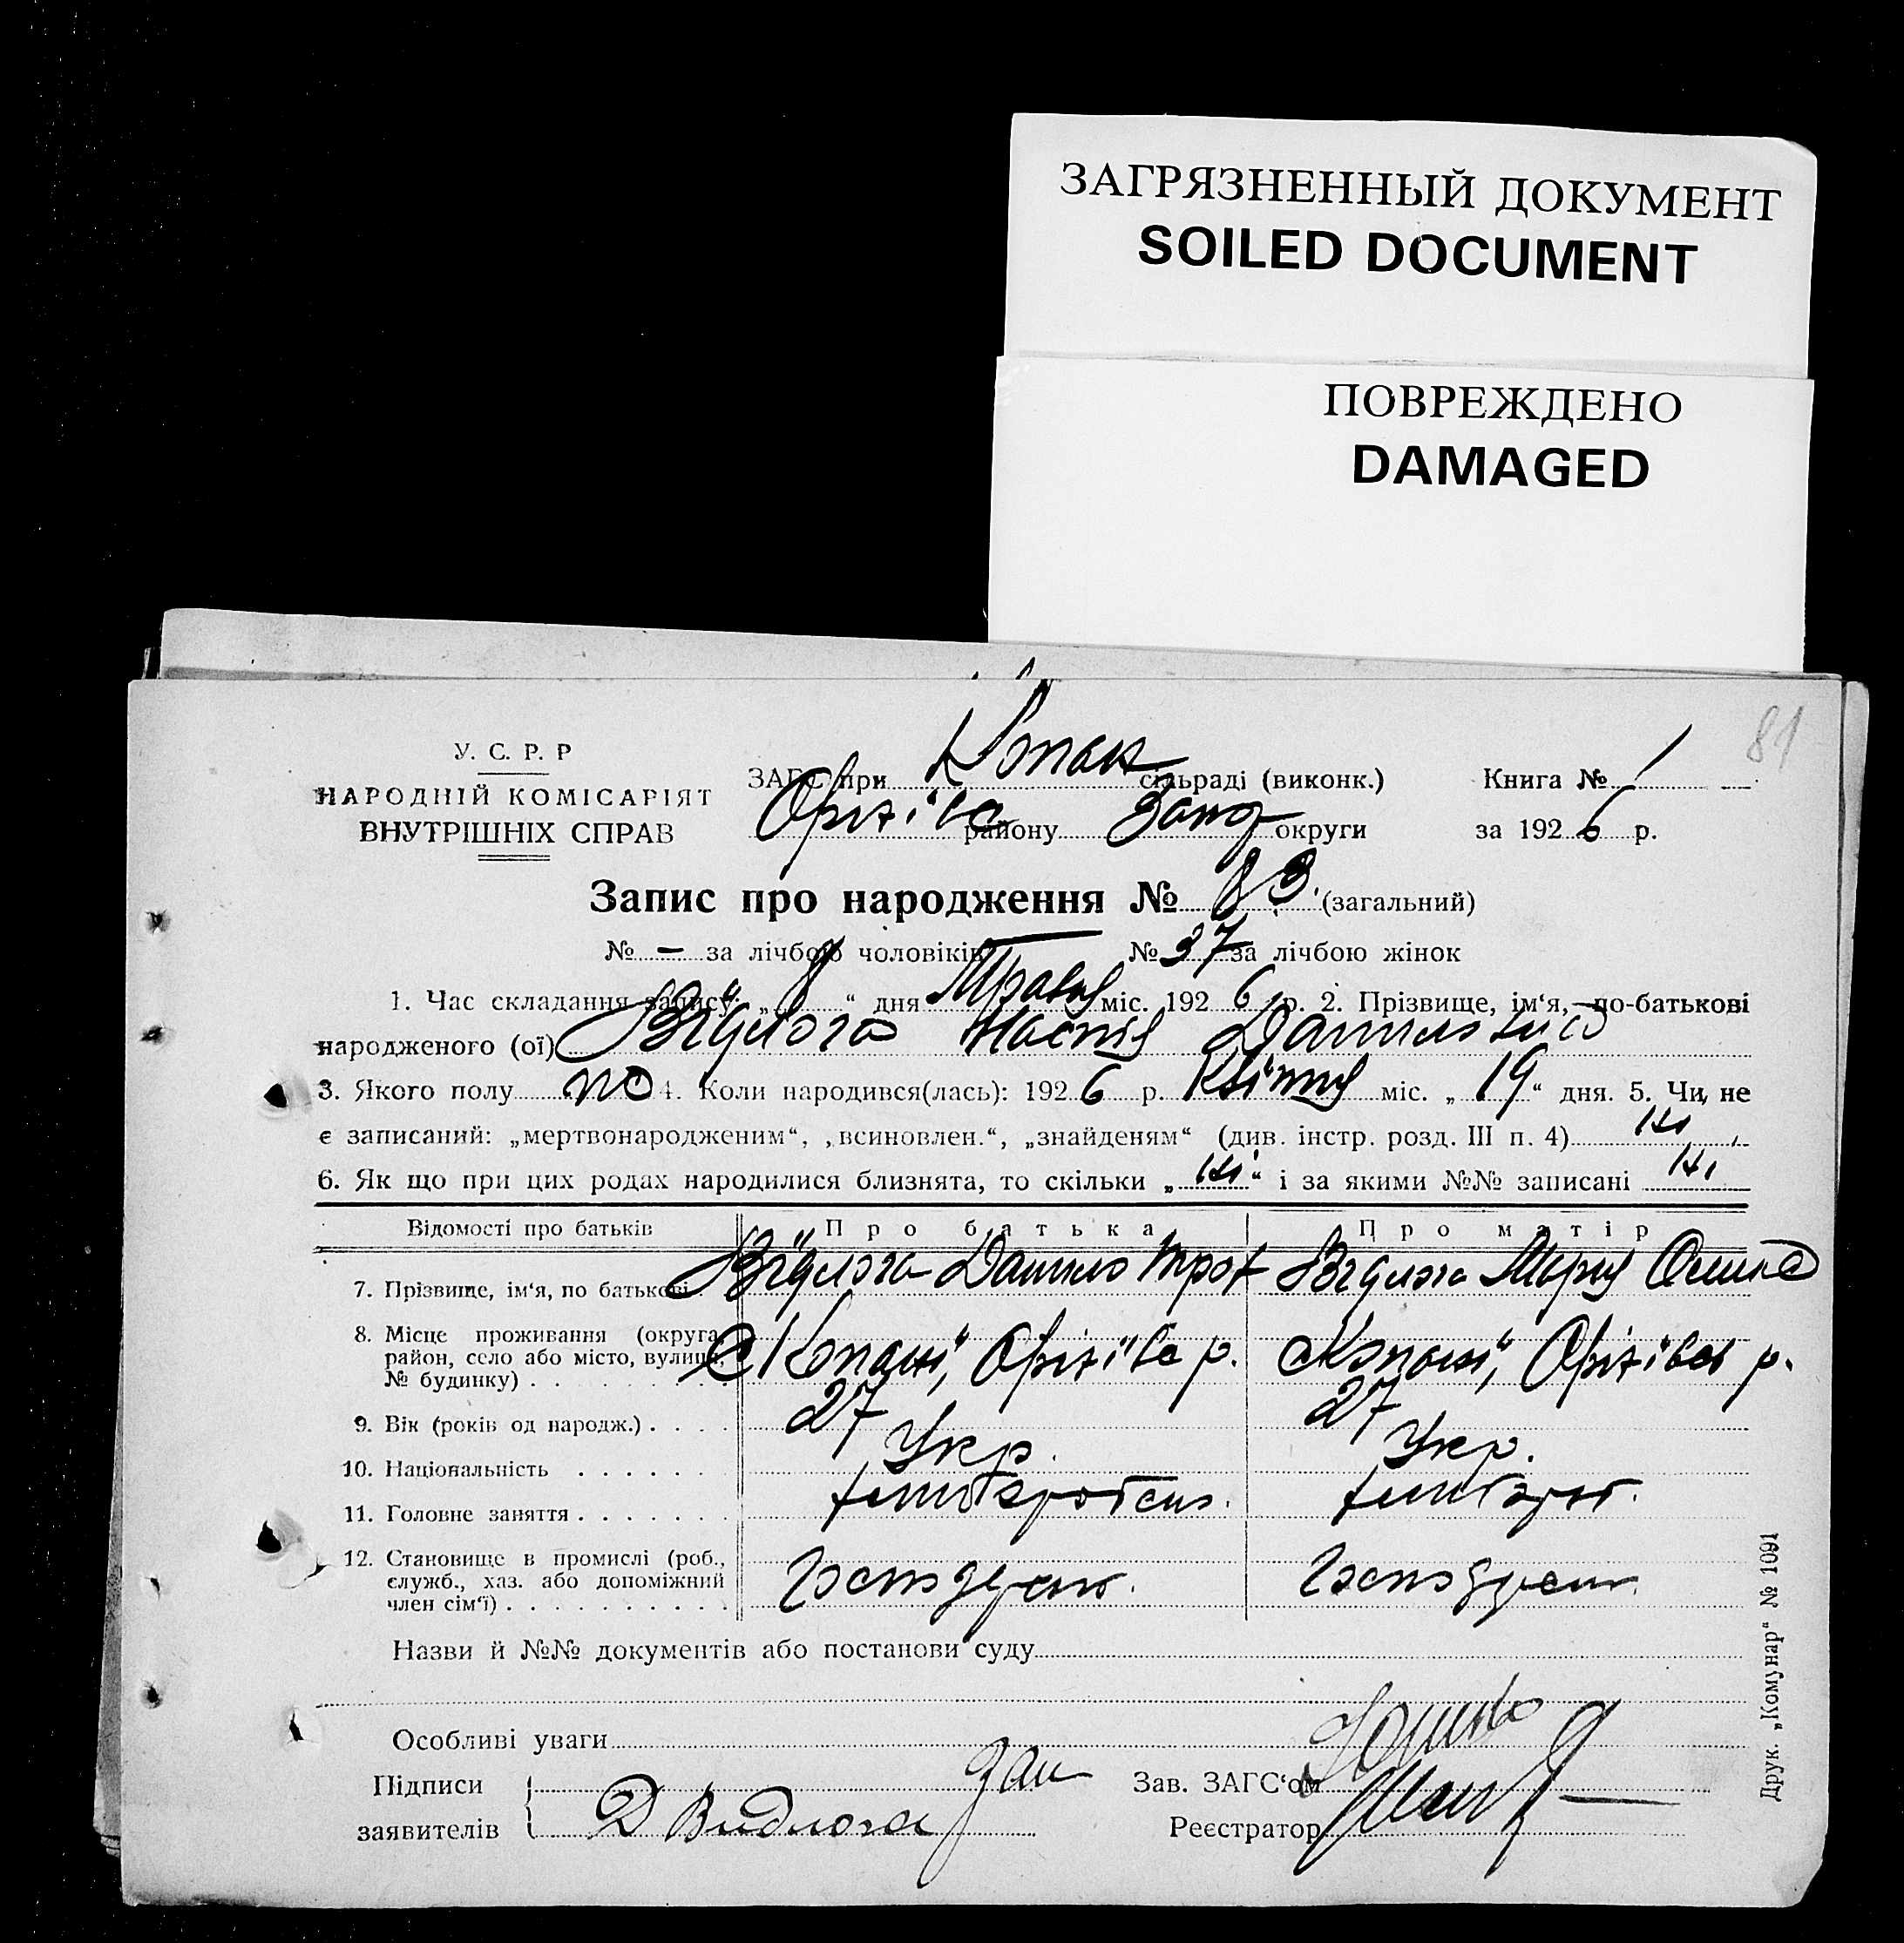 ЗАГРЯЗНЕННЫЙ ДОКУМЕНТ
SOILED DOCUMENT
ПОВРЕЖДЕНО
DAMAGED
81
У. С. Р. Р
НАРОДНІЙ КОМІСАРІЯТ
ВНУТРІШНІХ СПРАВ
ЗАГС при Копан сільраді (виконк.) Книга № 1
Оріхівс району Запор округи за 1926 р.
Запис про народження № 83 (загальний)
№ — за лічбою чоловіків № 37 за лічбою жінок
1. Час складання запису: „8“ дня Травня міс. 1926 р. 2. Прізвище, ім‘я, по-батькові
народженого (ої) Відлога Настя Данилівна
3. Якого полу 4. Коли народився(лась): 1926 р. Квітня міс. „19“ дня. 5. Чи не
є записаний: „мертвонародженим“, „всиновлен.“, „знайденям“ (див. інстр. розд. III п. 4) ні
6. Як що при цих родах народилися близнята, то скільки „ні“ і за якими №№ записані ні
Відомості про батьків Про батька Про матір
7. Прізвище, ім‘я, по батькові Відлога Данило Троф Відлога Мария
8. Місце проживання (округа, район, село або місто, вулиця, № будинку) С Копані, Оріхівс р. С Копані, Оріхівс р.
9. Вік (років од народж.) 27 27
10. Національність Укр. Укр.
11. Головне заняття хліборобств. хлібороб.
12. Становище в промислі (роб., служб., хаз. або допоміжний член сім‘ї)
Назви й №№ документів або постанови суду
Особливі уваги
Підписи Зав. ЗАГС‘ом
заявителів Д Видлога Реєстратор
Друк. „Комунар“ № 1091